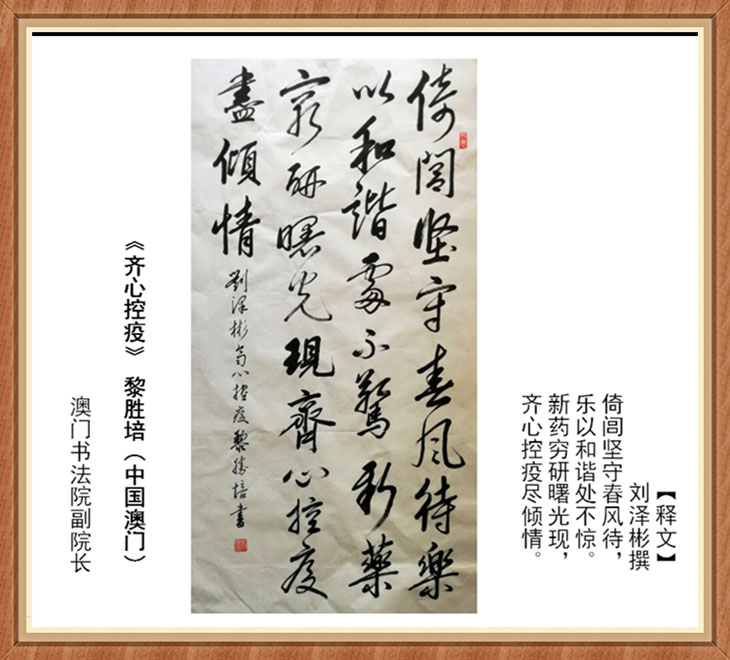 【释文】
刘泽彬撰
倚闾坚守春风待，
乐以和谐处不惊。
新药穷研曙光现，
齐心控疫尽倾情。
倚闾坚守春风待樂
以和諧處不驚新藥
窮研曙光現齊心控疫
盡傾情
劉澤彬 心控疫黎勝培書
《齐心控疫》 黎胜培（中国澳门）
澳门书法院副院长